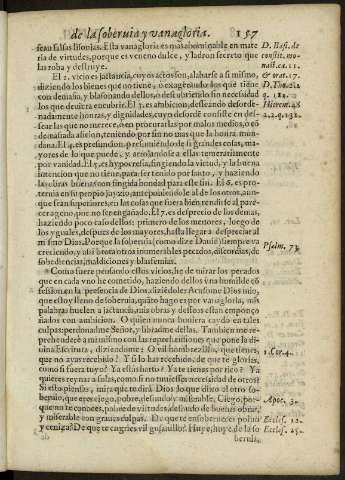 de la soberuia y vanagloria. 157
sean falsas lisonjas. Esta vanagloria es mas abominable en mate
ria de virtudes, porque es veneno dulce, y ladron secreto que
las roba y destruye.
El 2. vicio es jactancia, cuyos actos son, alabarse a si mismo,
diziendo los bienes que no tiene, o exagerando los que tiene
con demasia, y blasonando dellos, o descubriendolo sin necessidad
los que deuiera encubrir. El 3. es ambicion, desseando desorde-
nadamente honras, y dignidades, cuyo desorden consiste en des-
sear las que no merece, o en procurarlas por malos medios, o cõ
demasiada aficion, teniendo por fin no mas que la honra mun-
dana. El 4. es presuncion, presumiendo de si grandes cosas, ma
yores de lo que puede, y arrojandose a ellas temerariamente
por vanidad. El 5. es hypocresia, fingiendo la virtud, y la buena
intencion que no tiene, para ser tenido por santo, y haziendo
las obras buenas con fingida bondad para este fin. El 6. es pro-
teruia en su propio juyzio, anteponiendole al de los otros, aun-
que sean superiores, en las cosas que fuera bien rendirse al pare-
cer ageno, por no ser engañado. El 7. es desprecio de los demas,
haziendo poco caso dellos: primero de los menores, luego de
los yguales, despues de los mayores, hasta llegar a despreciar al
mismo Dios. Porque la soberuia (como dize Dauid) siempre va
creciendo, y assi brota otros innumerables pecados, discordias, de
sobediencias, maldiciones, y blasfemias.
Como fuere pensando estos vicios, he de mirar los pecados
que en cada vno he cometido, haziendo dellos vna humilde cõ
fession en la presencia de Dios, diziendole: Acusome Dios mio,
que estoy lleno de soberuia, quãto hago es por vanagloria, mis
palabras huelen a jactancia, mis obras y desseos estan empon-
çoñados con ambicion. O quien nunca huuiera caydo en tales
culpas: perdoname Señor, y librame dellas. Tambien me re-
prehendere a mi mismo con las reprehensiones que pone la di-
uina Escritura, diziendome: O vil hombrezillo, que tienes,
que no ayas recebido? Y si lo has recebido, de que te glorias,
como si fuera tuyo? Ya estàs harto? Ya te tienes por rico? Ya
quieres reynar a solas, como si no tuuiesses necesidad de otros?
Si esto piensas, mira que te dirà Dios lo que dixo al otro so-
beruio, que eres ciego, pobre, desnudo, y miserable. Ciego, por-
que no te conoces, pobre de virtudes, desnudo de buenas obras,
y miserable con grandes culpas. De que te ensoberueces poluo
y ceniza? De que te engries vil gusanillo? Huye, huye de la so
beruia,
D. Basi. de
constit. mo-
nast. ca. 11.
& orat. 17.
D. Tho. 2. 2
q. 112.
2. 2. q. 132.
Psalm. 73.
1. Cor. 4.
Apoc. 3.
Eccles. 12
Eccles. 25.